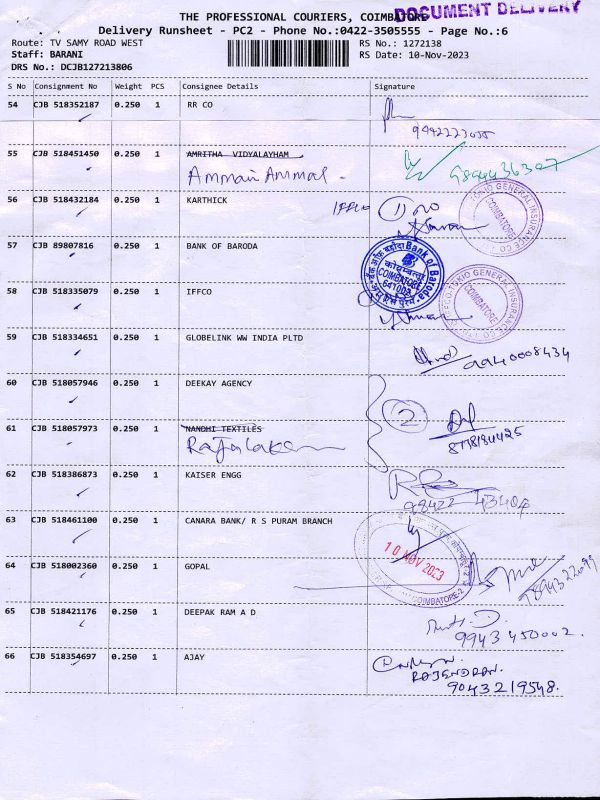 THE PROFESSIONAL COURIERS, COIMBATORE
DOCUMENT DELIVERY
Delivery Runsheet - PC2 - Phone No.:0422-3505555 - Page No.:6
Route: TV SAMY ROAD WEST
RS No.: 1272138
Staff: BARANI
RS Date: 10-Nov-2023
DRS No.: DCJB127213806
S No Consignment No Weight PCS Consignee Details Signature
54 CJB 518352187 0.250 1 RR CO
55 CJB 518451450 0.250 1 AMRITHA VIDYALAYHAM
Ammani Ammal -
9894436307
56 CJB 518432184 0.250 1 KARTHICK
IFFCO TOKIO GENERAL INSURANCE CO
COIMBATORE
57 CJB 89807816 0.250 1 BANK OF BARODA
बैंक ऑफ़ बड़ौदा Bank of Baroda
COIMBATORE
641002
58 CJB 518335079 0.250 1 IFFCO
IFFCO TOKIO GENERAL INSURANCE
COIMBATORE
59 CJB 518334651 0.250 1 GLOBELINK WW INDIA PLTD
9940008434
60 CJB 518057946 0.250 1 DEEKAY AGENCY
2
61 CJB 518057973 0.250 1 NANDHI TEXTILES
62 CJB 518386873 0.250 1 KAISER ENGG
98422 43404
63 CJB 518461100 0.250 1 CANARA BANK/ R S PURAM BRANCH
10 NOV 2023
COIMBATORE-2
64 CJB 518002360 0.250 1 GOPAL
65 CJB 518421176 0.250 1 DEEPAK RAM A D
9943450002.
66 CJB 518354697 0.250 1 AJAY
RAJENDRAN.
9043219548.